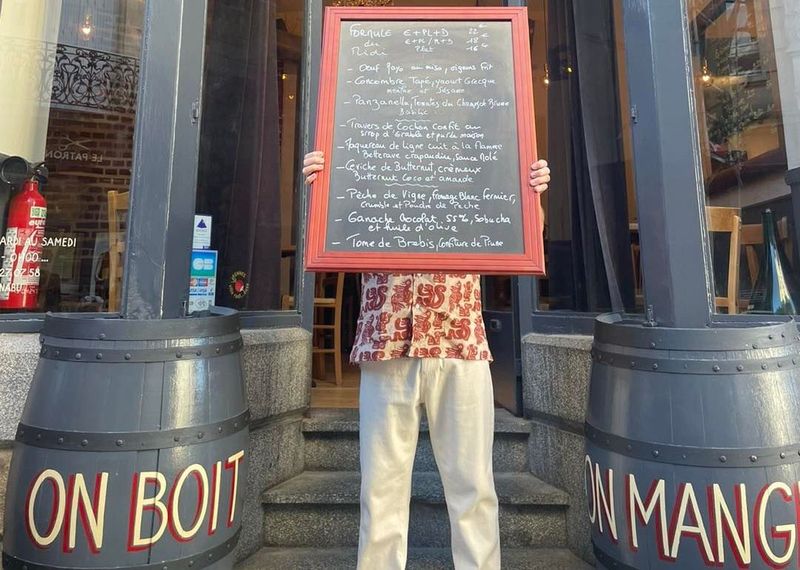 FORMULE E+PL+D 22 €
du E+PL/PL+D 18 €
Midi Plat 16 €
- Oeuf Mayo au miso, oignons frit
- Concombre Tapé, yaourt Grecque
menthe et Sésame
- Panzanella, Tomates du
Basilic
- Travers de Cochon Confit au
sirop d'Erable et purée maison
- Maquereau de ligne cuit à la flamme
Betterave crapaudine, Sauce Molé
- Ceviche de Butternut, crémeux
Butternut Coco et amande
- Pêche de Vigne, fromage Blanc fermier,
Crumble et Poudre de Pêche
- Ganache Chocolat 55%, Sobacha
et huile d'olive
- Tome de Brebis, Confiture de Prune
LE PATRON
ARDI AU SAMEDI
0H00
27 07 58
CB
ON BOIT
ON MANG